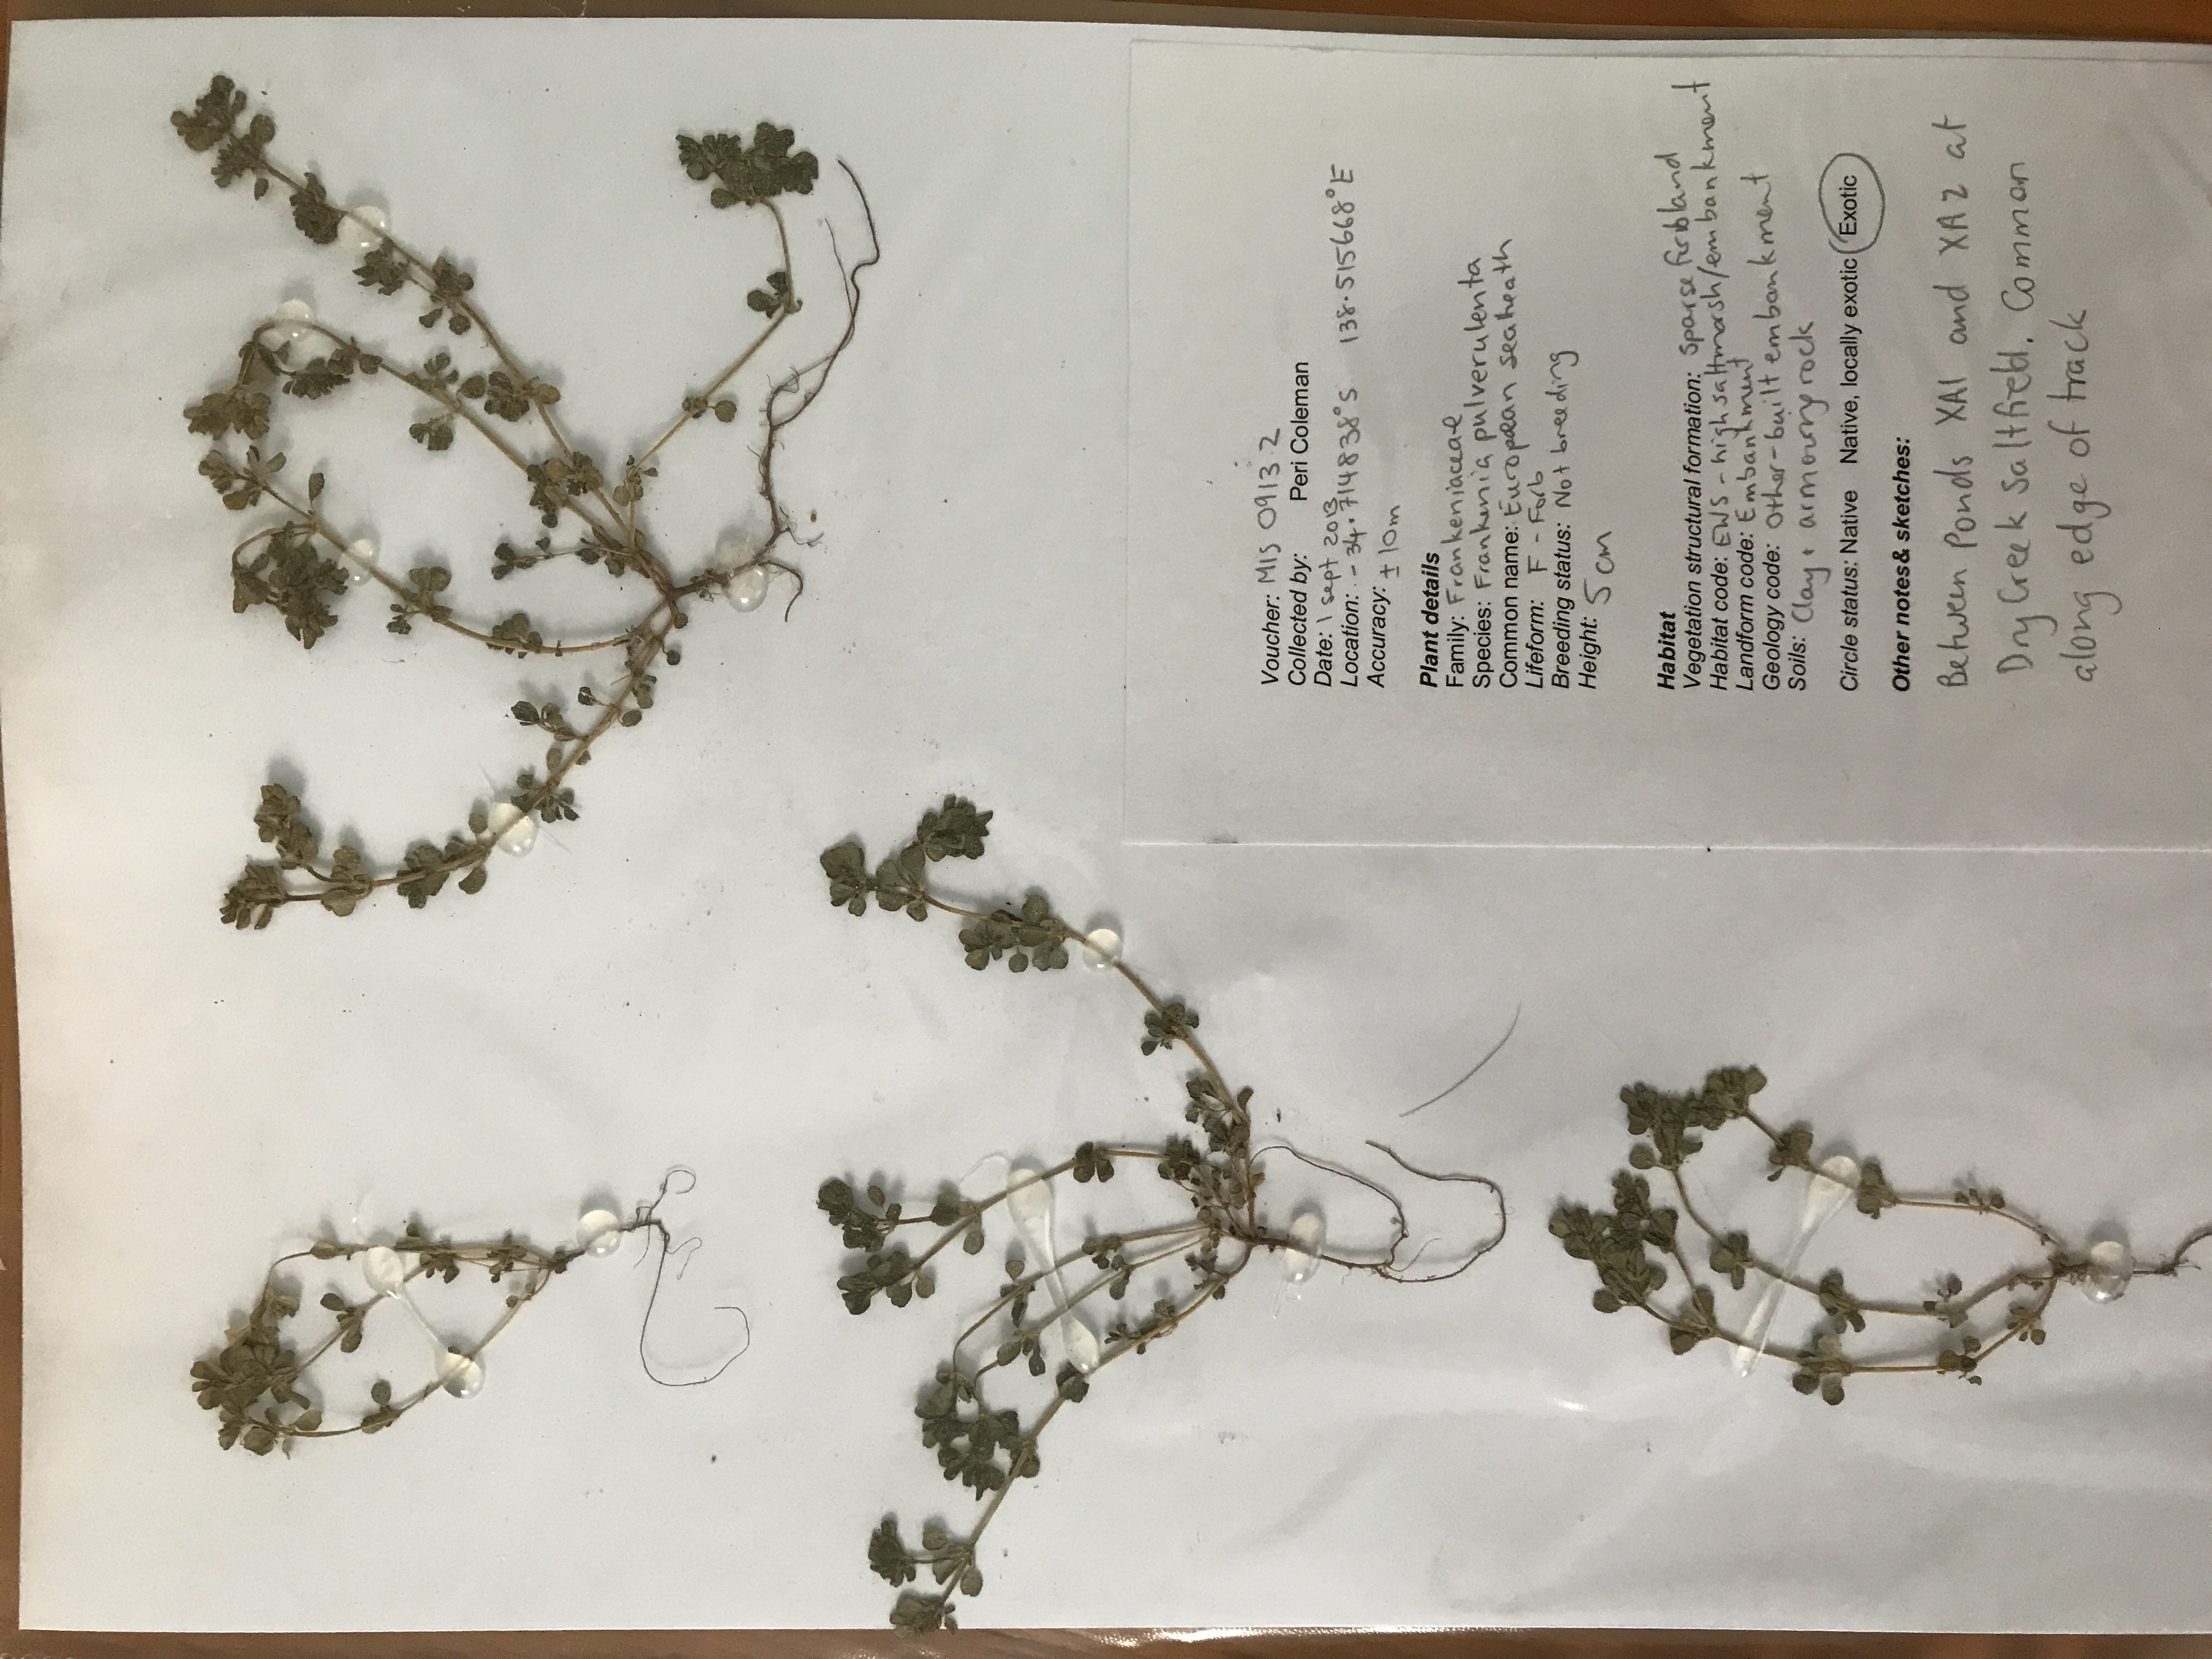 Voucher: MIS 0913.2
Collected by: Peri Coleman
Date: 1 sept 2013
Location: -34.714838°S 138.515668°E
Accuracy: ±10m
Plant details
Family: Frankeniaceae
Species: Frankenia pulverulenta
Common name: European seaheath
Lifeform: F - Forb
Breeding status: Not breeding
Height: 5 cm
Habitat
Vegetation structural formation: sparse forbland
Habitat code: EWS - high saltmarsh/embankment
Landform code: Embankment
Geology code: Other - built embankment
Soils: Clay + armouring rock
Circle status: Native Native, locally exotic Exotic
Other notes& sketches:
Between Ponds XA1 and XA2 at
Dry Creek Saltfield. Common
along edge of track